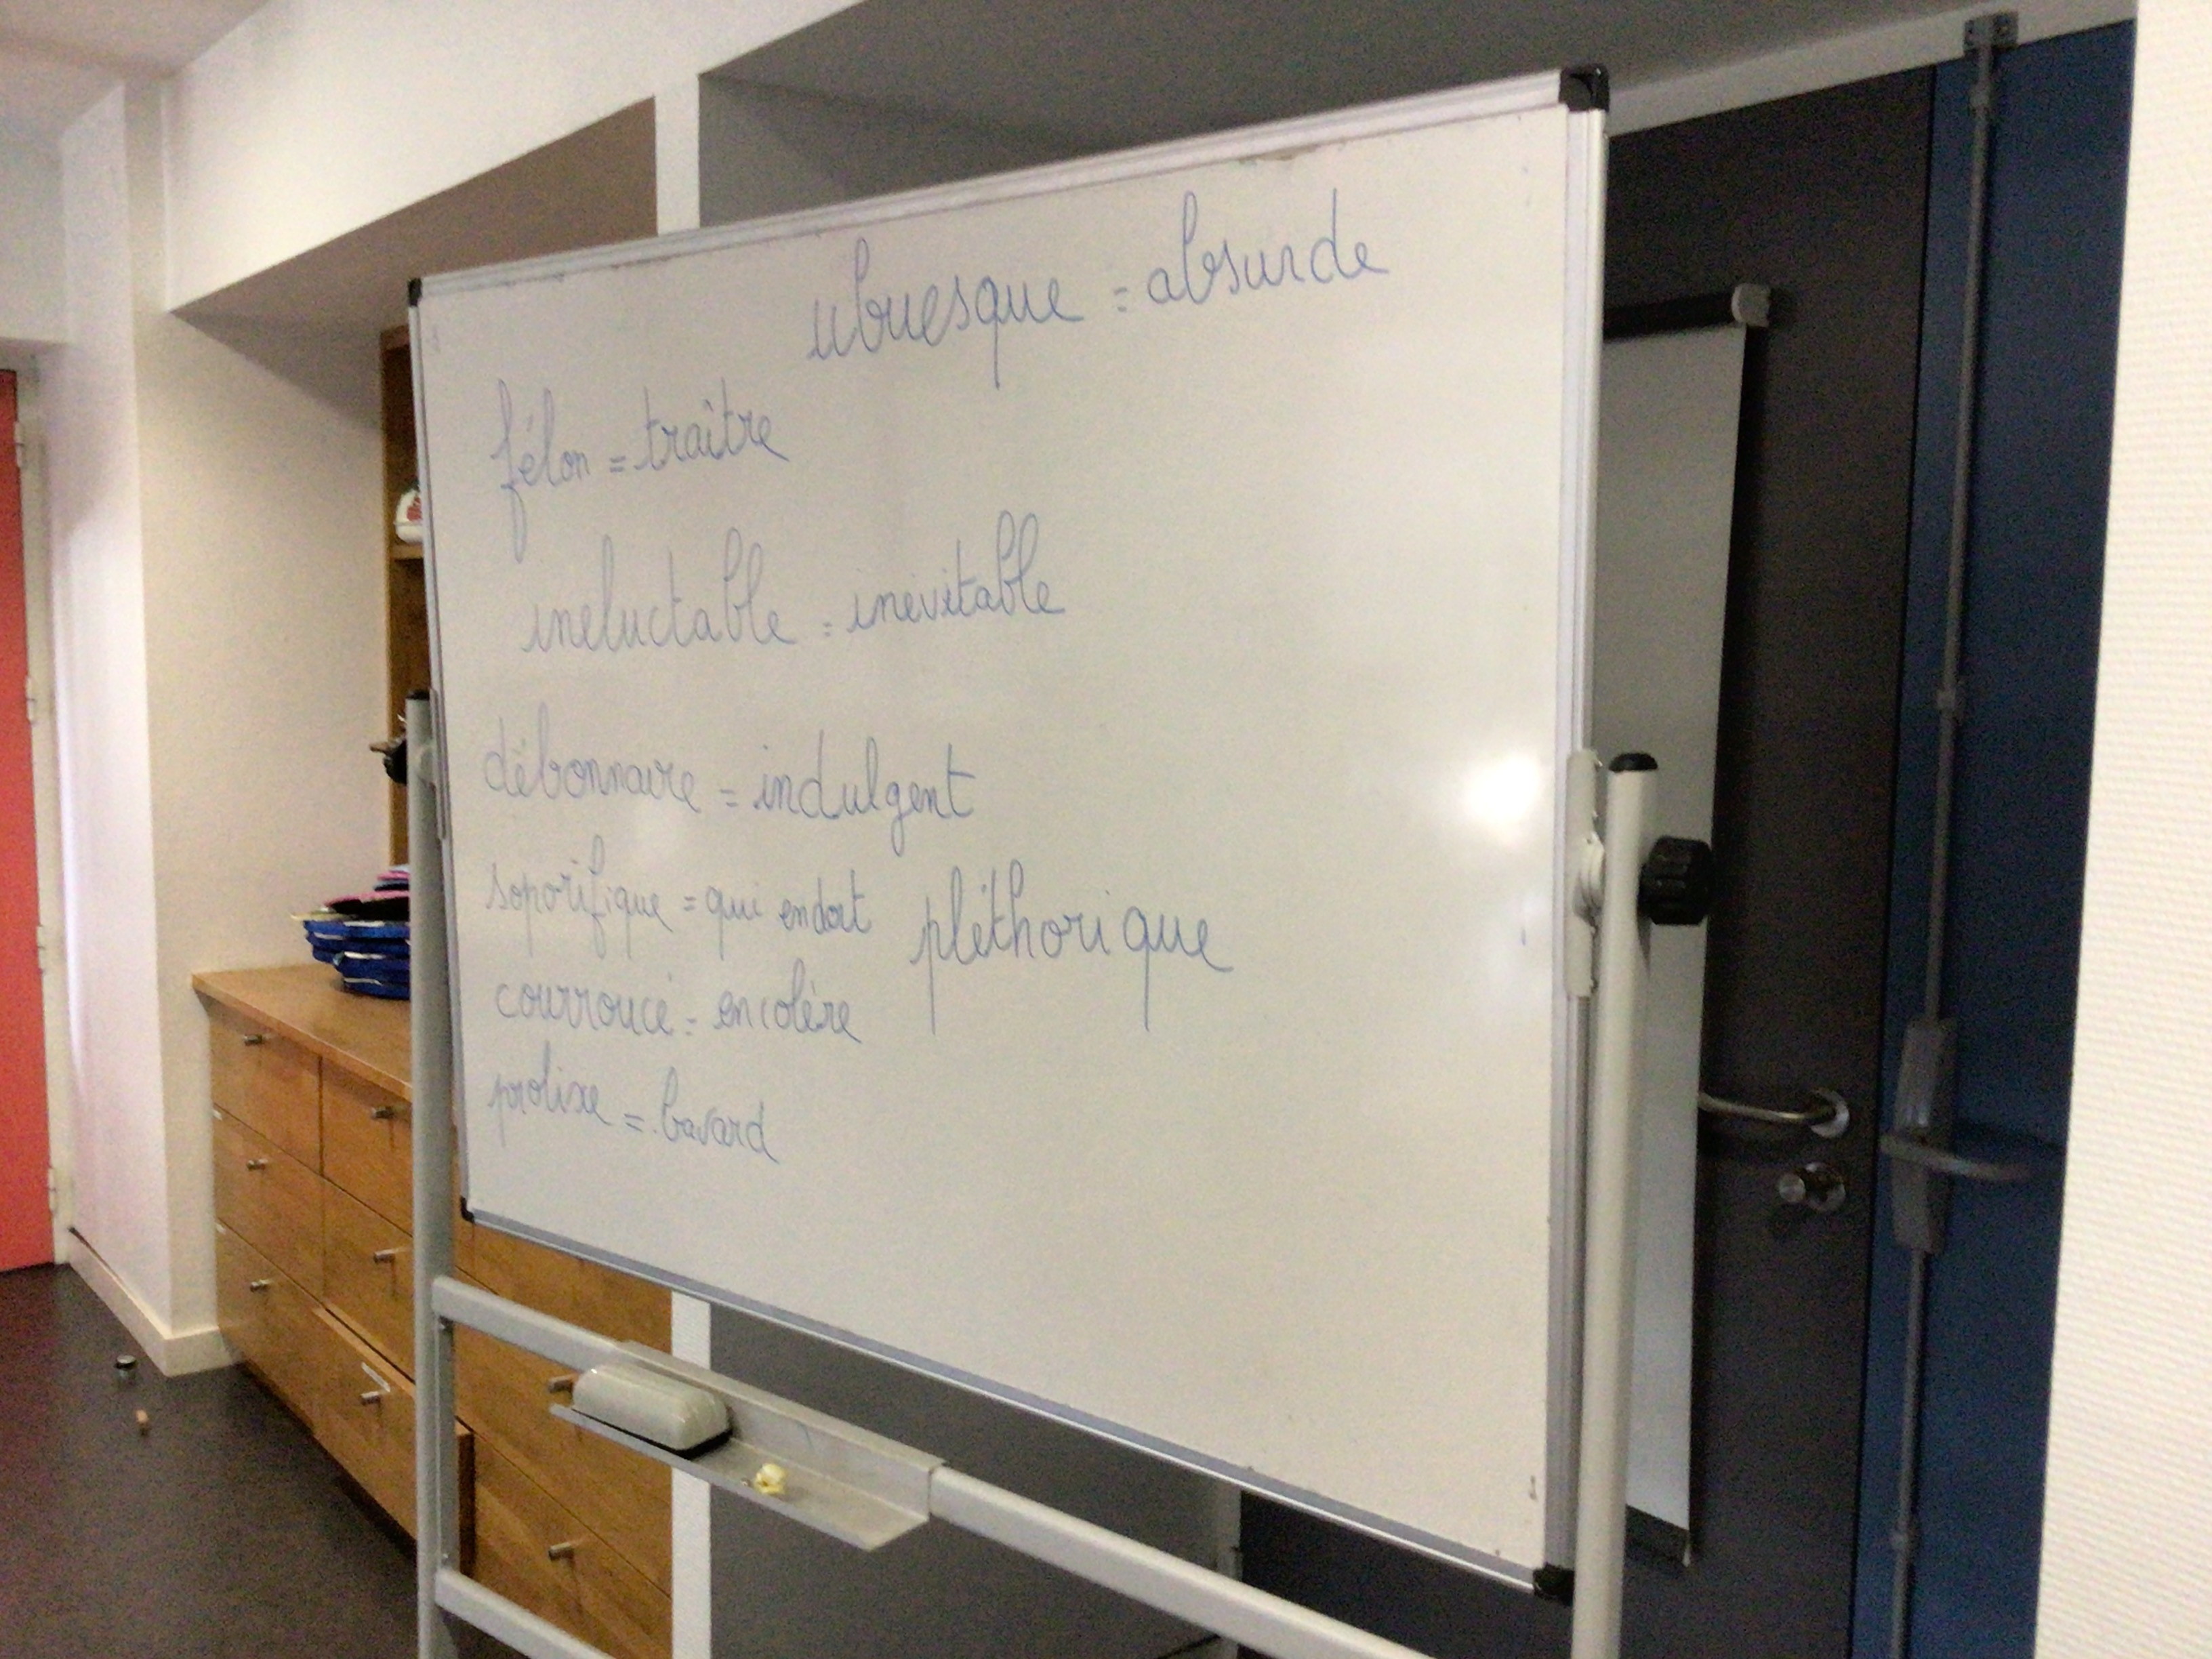 ubuesque = absurde
félon = traître
ineluctable = inevitable
débonnaire = indulgent
soporifique = qui endort
pléthorique
courroucé = en colère
prolixe = bavard